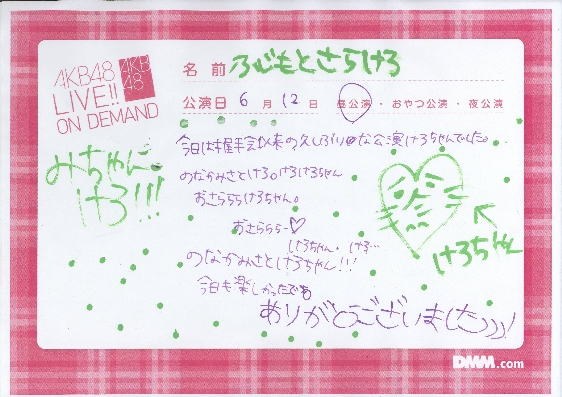 AKB48
LIVE!!
ON DEMAND
AKB
48
名前 ふじもとさらけろ
公演日 6月12日 昼公演・おやつ公演・夜公演
今日は握手会以来の久しぶりな公演けろちゃんでした。
のなかみさとけろ。けろけろちゃん
おさらららけろちゃん。
おさらららー♡
けろちゃん・けろ…
のなかみさとけろちゃん!!!
今日も楽しかったでる
ありがとうございました)))!
みちゃんに
けろ!!!
けろちゃん
DMM.com